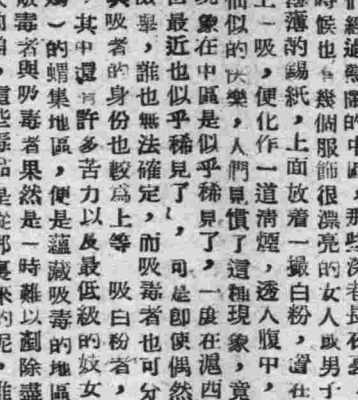 那些深巷長
時候也有幾個服飾很漂亮的女人或男子
薄的錫紙，上面放着一撮白粉，當在
上一吸，便化作一道清煙，透人腹中，
似的快樂，人們見慣了這種現象，竟
現象在中區是似乎稀見了，一度在滬西
最近也似乎稀見了，可是即使偶然
舉，誰也無法確定，而吸毒者也可分
與吸者的身份也較爲上等 吸白粉者，
其中還有許多苦力以及最低級的妓女
）的蝟集地區，便是蘊藏吸毒的地區
販毒者與吸毒者果然是一時難以剷除盡
這些毒品是從那裏來的呢，誰